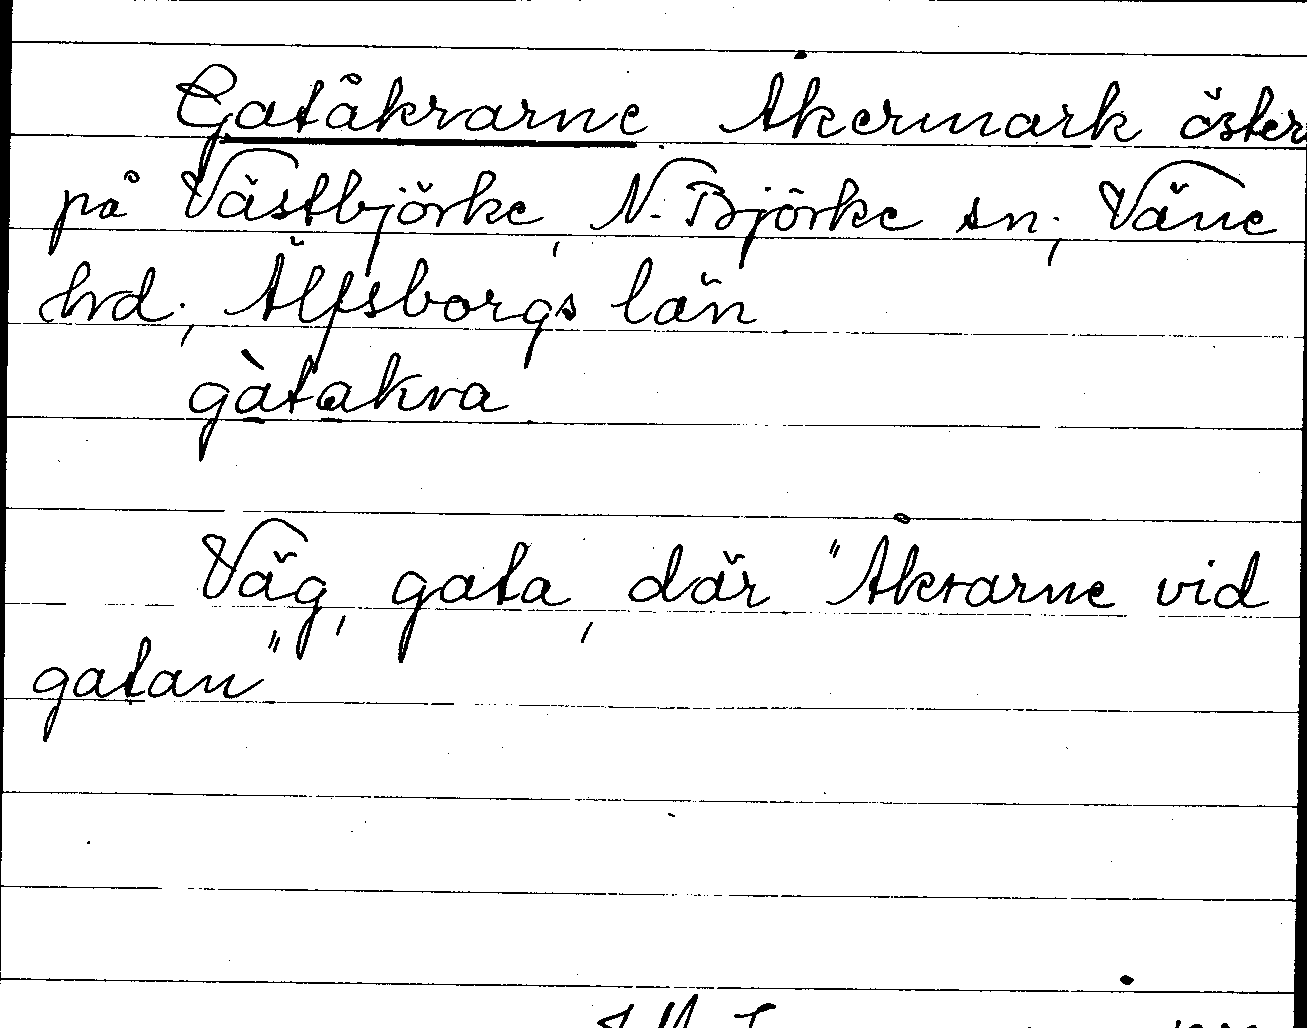 Gatåkrarne. Åkermark öster
på Västbjörke, N. Björke sn., Väne
hd., Älfsborgs län.
gàtakra
Väg, gata, där. "Åkrarne vid
gatan"